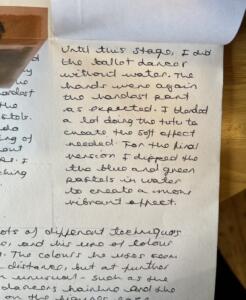 hardest
the
Until this stage, I did
the ballet dancer
without water. The
hands were again
the hardest part
as expected. I blended
a lot doing the tutu to
create the soft effect
needed. For the final
version I dipped the
the blue and green
pastels in water
to create a more
vibrant effect.
of different techniques
and this use of colour
The colours he uses seem
distance, but at further
unusual - such as the
dancers hairline and the
on the figures